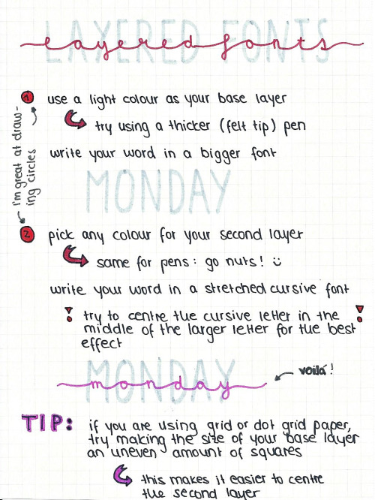 LAYERED FONTS
layered fonts
1 use a light colour as your base layer
try using a thicker (felt tip) pen
write your word in a bigger font
I'm great at draw-
ing circles
MONDAY
2 pick any colour for your second layer
same for pens: go nuts! :)
write your word in a stretched cursive font
! try to centre the cursive letter in the !
middle of the larger letter for the best
effect
MONDAY
monday
voilá!
TIP: if you are using grid or dot grid paper,
try making the size of your base layer
an uneven amount of squares
this makes it easier to centre
the second layer